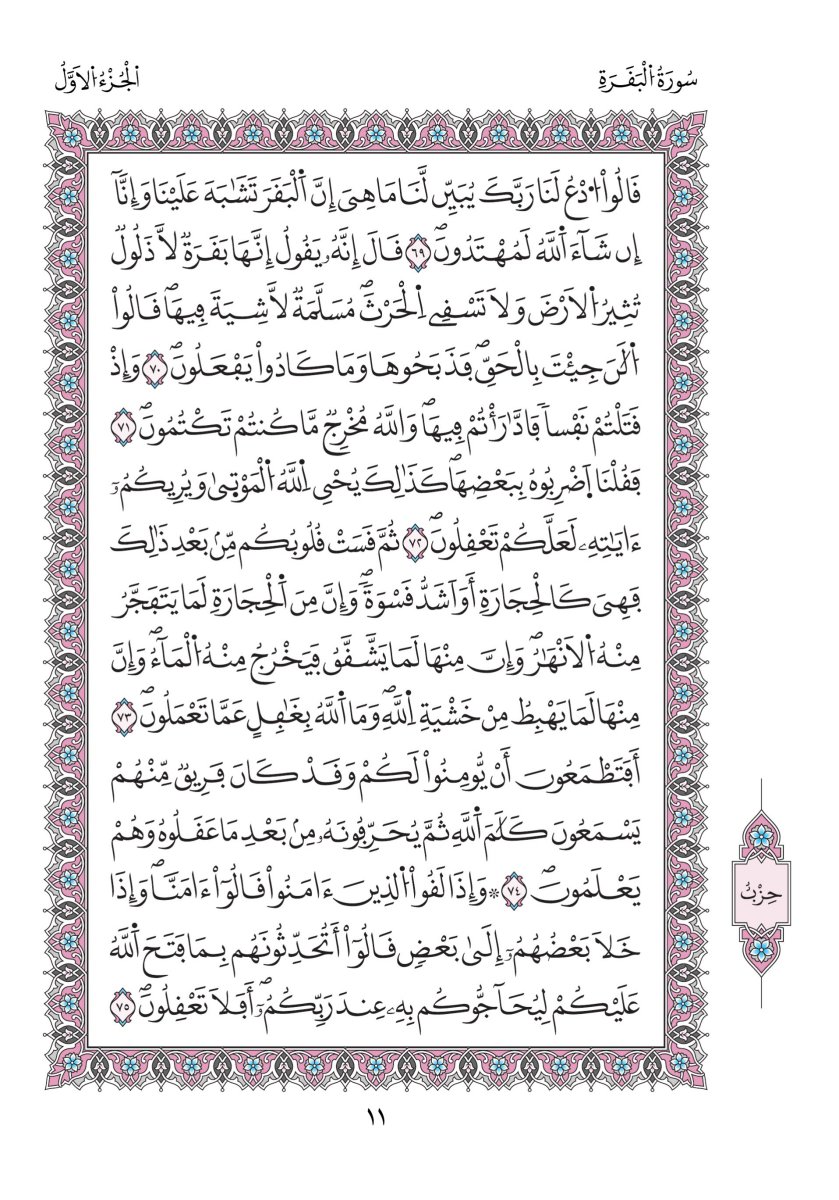 سُورَةُ اُ۬لْبَقَرَةِ
اَ۬لْجُزْءُ اُ۬لَاوَّلُ
قَالُواْ اُ۟دْعُ لَنَا رَبَّكَ يُبَيِّن لَّنَا مَا هِىَ إِنَّ اَ۬لْبَقَرَ تَشَٰبَهَ عَلَيْنَا وَإِنَّآ
إِن شَآءَ اَ۬للَّهُ لَمُهْتَدُونَۖ ٦٩ قَالَ إِنَّهُۥ يَقُولُ إِنَّهَا بَقَرَةٞ لَّا ذَلُولٞ
تُثِيرُ اُ۬لَارْضَ وَلَا تَسْقِے اِ۬لْحَرْثَۖ مُسَلَّمَةٞ لَّا شِيَةَ فِيهَاۖ قَالُواْ
اُ۬لَٰنَ جِيْتَ بِالْحَقِّۖ فَذَبَحُوهَا وَمَا كَادُواْ يَفْعَلُونَۖ ٧٠ وَإِذْ
قَتَلْتُمْ نَفْساٗ فَادَّٰرَٰٔتُمْ فِيهَاۖ وَاللَّهُ مُخْرِجٞ مَّا كُنتُمْ تَكْتُمُونَۖ ٧١
فَقُلْنَا اَ۪ضْرِبُوهُ بِبَعْضِهَاۖ كَذَٰلِكَ يُحْىِ اِ۬للَّهُ اُ۬لْمَوْت۪ىٰ وَيُرِيكُمُۥٓ
ءَايَٰتِهِۦ لَعَلَّكُمْ تَعْقِلُونَۖ ٧٢ ثُمَّ قَسَتْ قُلُوبُكُم مِّنۢ بَعْدِ ذَٰلِكَ
فَهِىَ كَالْحِجَارَةِ أَوَ اَشَدُّ قَسْوَةٗۖ وَإِنَّ مِنَ اَ۬لْحِجَارَةِ لَمَا يَتَفَجَّرُ
مِنْهُ اُ۬لَانْهَٰرُۖ وَإِنَّ مِنْهَا لَمَا يَشَّقَّقُ فَيَخْرُجُ مِنْهُ اُ۬لْمَآءُۖ وَإِنَّ
مِنْهَا لَمَا يَهْبِطُ مِنْ خَشْيَةِ اِ۬للَّهِۖ وَمَا اَ۬للَّهُ بِغَٰفِلٍ عَمَّا تَعْمَلُونَۖ ٧٣
أَفَتَطْمَعُونَ أَنْ يُّومِنُواْ لَكُمْ وَقَدْ كَانَ فَرِيقٞ مِّنْهُمْ
يَسْمَعُونَ كَلَٰمَ اَ۬للَّهِ ثُمَّ يُحَرِّفُونَهُۥ مِنۢ بَعْدِ مَا عَقَلُوهُ وَهُمْ
يَعْلَمُونَۖ ٧٤ ۞ وَإِذَا لَقُواْ اُ۬لذِينَ ءَامَنُواْ قَالُوٓاْ ءَامَنَّاۖ وَإِذَا
خَلَا بَعْضُهُمُۥٓ إِلَىٰ بَعْضٖ قَالُوٓاْ أَتُحَدِّثُونَهُم بِمَا فَتَحَ اَ۬للَّهُ
عَلَيْكُمْ لِيُحَآجُّوكُم بِهِۦ عِندَ رَبِّكُمُۥٓۖ أَفَلَا تَعْقِلُونَۖ ٧٥
حِزْبٌ
١١